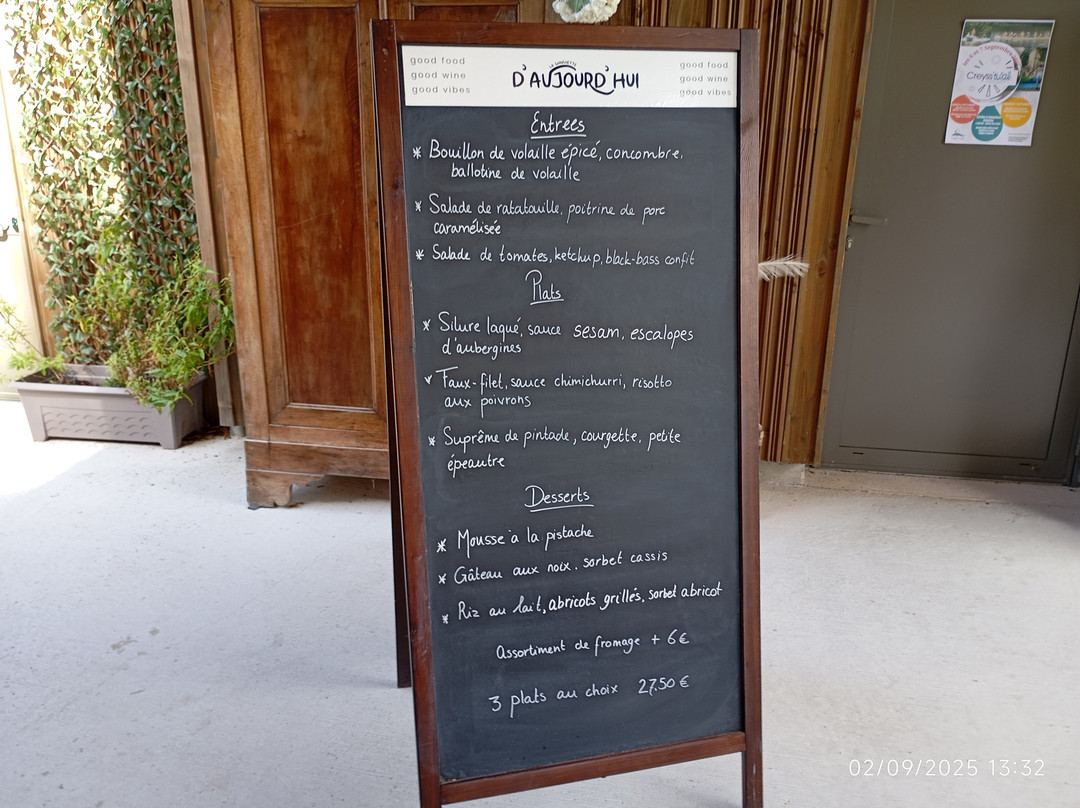 good food
good wine
good vibes
LA GUINGUETTE
D'AUJOURD'HUI
good food
good wine
good vibes
Entrees
* Bouillon de volaille épicé, concombre,
ballotine de volaille
* Salade de ratatouille, poitrine de porc
caramélisée
* Salade de tomates, ketchup, black-bass confit
Plats
* Silure laqué, sauce sesam, escalopes
d'aubergines
* Faux-filet, sauce chimichurri, risotto
aux poivrons
* Suprême de pintade, courgette, petite
épeautre
Desserts
* Mousse à la pistache
* Gâteau aux noix, sorbet cassis
* Riz au lait, abricots grillés, sorbet abricot
Assortiment de fromage + 6€
3 plats au choix 27.50 €
Septembre
02/09/2025 13:32